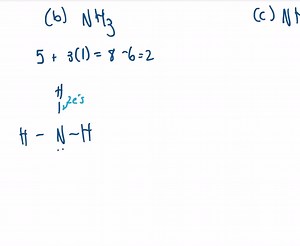 (b) NH₃
(c) NH
5 + 3(1) = 8 - 6 = 2
H
2e's
H - N - H